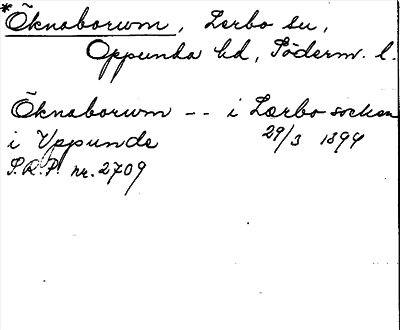 *Öknaborum, Lerbo sn,
Oppunda hd, Söderm. l.
Öknaborum -- i Lærbo socken
i Uppunde 29/3 1399
S.R.P. nr. 2709